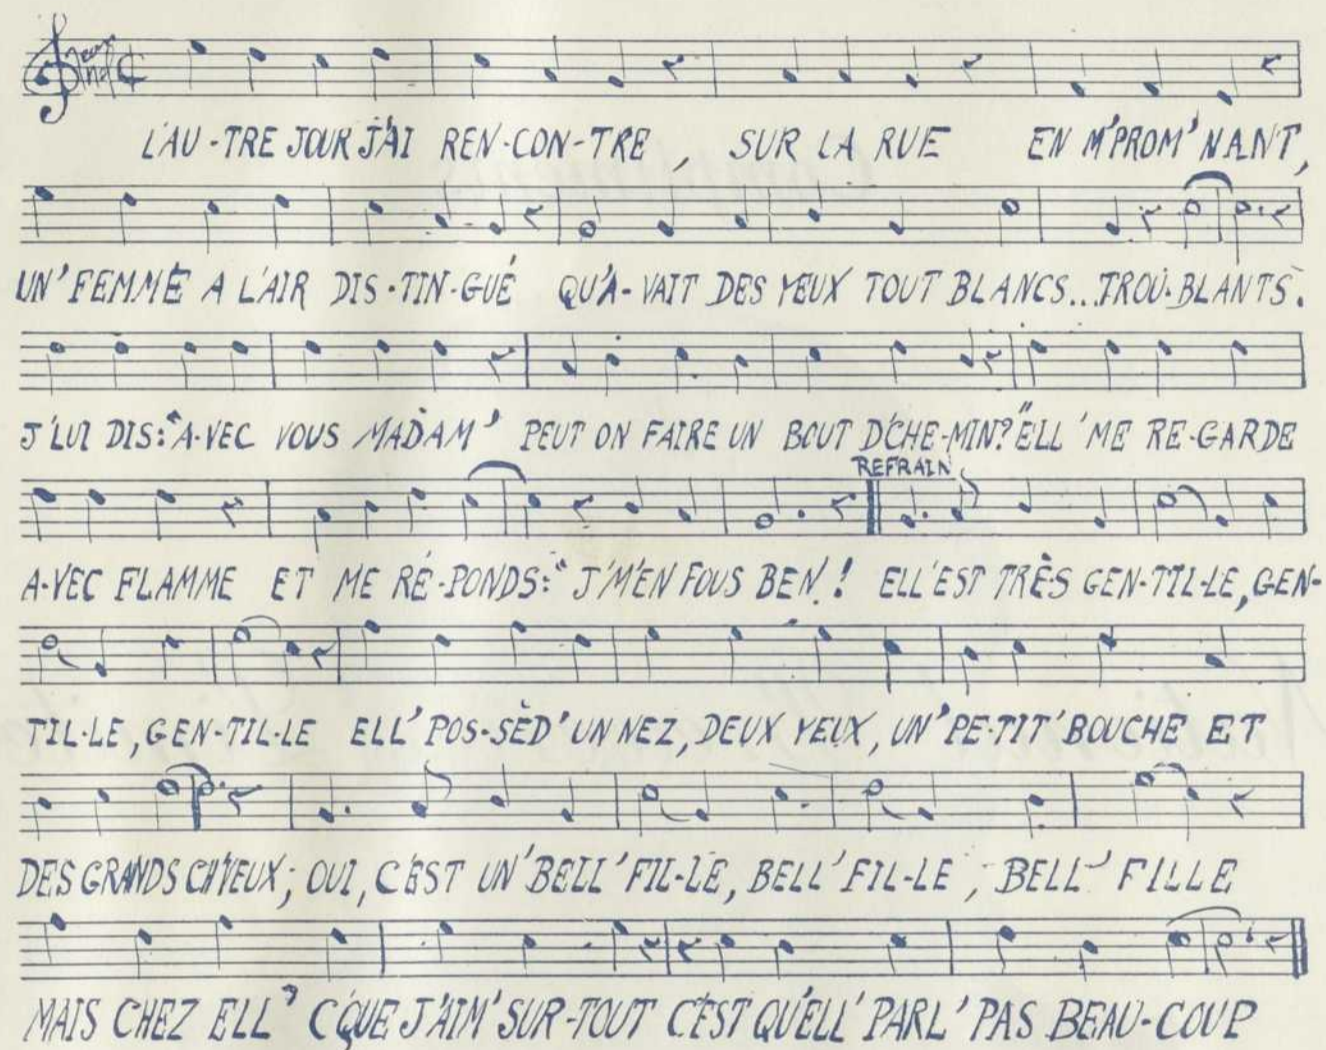 L'AU-TRE JOUR J'AI REN-CON-TRE, SUR LA RUE EN M'PROM'NANT,
UN'FEMME A L'AIR DIS-TIN-GUÉ QU'A-VAIT DES YEUX TOUT BLANCS...TROU-BLANTS.
J'LUI DIS:"A-VEC VOUS MADAM' PEUT ON FAIRE UN BOUT D'CHE-MIN?" ELL'ME RE-GARDE
REFRAIN
A-VEC FLAMME ET ME RÉ-PONDS:"J'M'EN FOUS BEN! ELL'EST TRÈS GEN-TIL-LE, GEN-
TIL-LE, GEN-TIL-LE ELL'POS-SÈD'UN NEZ, DEUX YEUX, UN'PE-TIT'BOUCHE ET
DES GRANDS CH'VEUX; OUI, C'EST UN'BELL'FIL-LE, BELL'FIL-LE, BELL'FILLE
MAIS CHEZ ELL' C'QUE J'AIM'SUR-TOUT C'EST QU'ELL'PARL'PAS BEAU-COUP